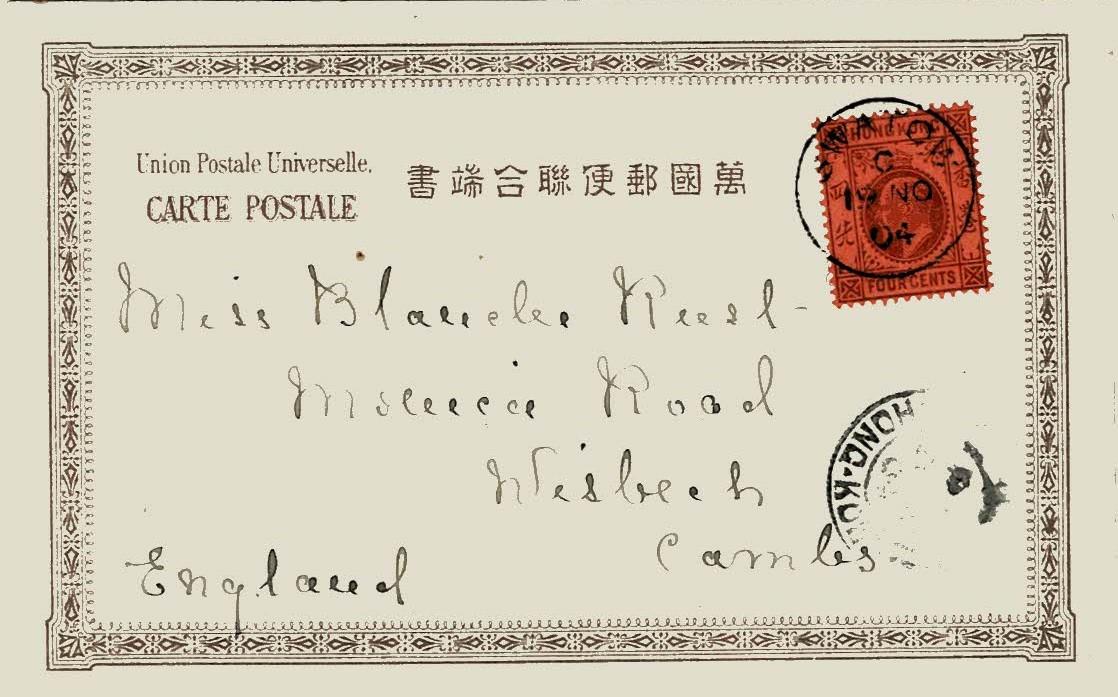 Union Postale Universelle.
CARTE POSTALE
萬國郵便聯合端書
HONG KONG
FOUR CENTS
SWATOW
C
19 NO
04
Miss Blanche Rust -
Road
Wisbech
Cambs
England
HONG·KO